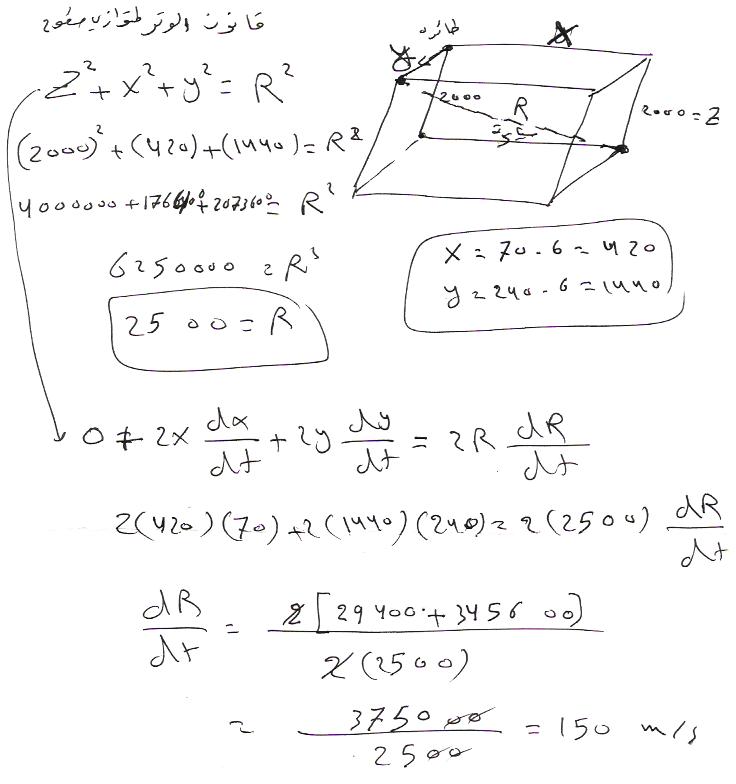 قانون الوتر لمتوازي سطوح
Z² + x² + y² = R²
(2000)² + (420) + (1440) = R²
4000000 + 176400 + 2073600 = R²
6250000 = R²
2500 = R
طائرة
x
y
2000
R
2000 = Z
x = 70 . 6 = 420
y = 240 . 6 = 1440
0 + 2x dx/dt + 2y dy/dt = 2R dR/dt
2(420)(70) + 2(1440)(240) = 2(2500) dR/dt
dR/dt = 2[29400 + 345600] / 2(2500)
= 375000 / 2500 = 150 m/s